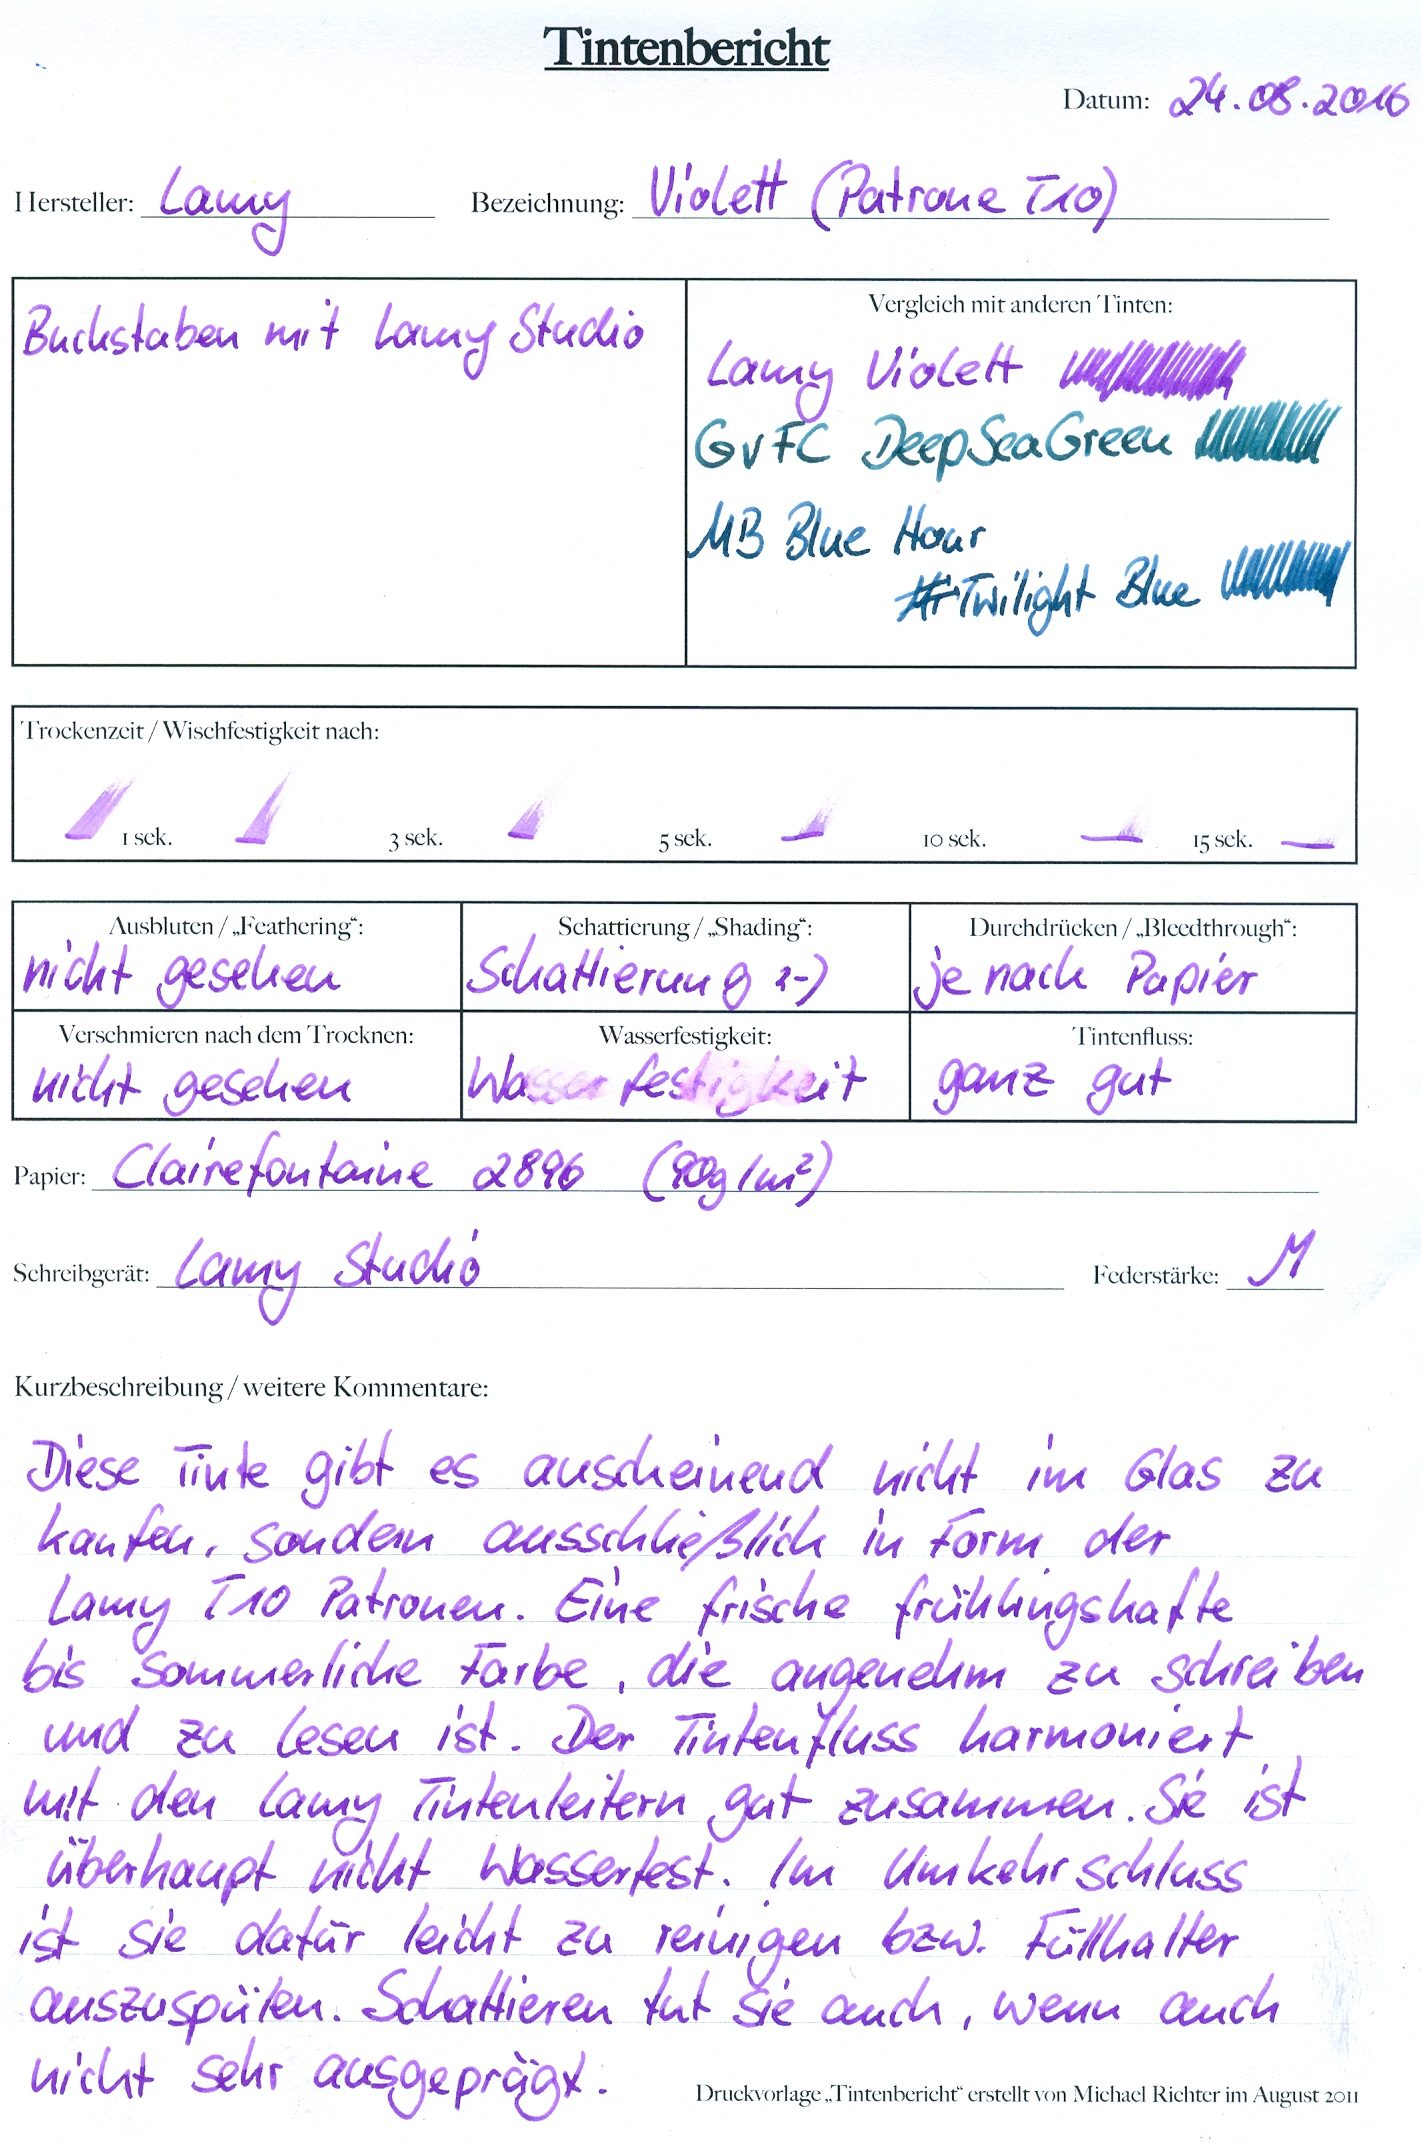 Tintenbericht
Datum: 24.08.2016
Hersteller: Lamy Bezeichnung: Violett (Patrone T10)
Buchstaben mit Lamy Studio
Vergleich mit anderen Tinten:
Lamy Violett
GvFC DeepSeaGreen
MB Blue Hour
Twilight Blue
Trockenzeit / Wischfestigkeit nach:
1 sek. 3 sek. 5 sek. 10 sek. 15 sek.
Ausbluten / „Feathering“: Schattierung / „Shading“: Durchdrücken / „Bleedthrough“:
nicht gesehen Schattierung :-) je nach Papier
Verschmieren nach dem Trocknen: Wasserfestigkeit: Tintenfluss:
nicht gesehen Wasserfestigkeit ganz gut
Papier: Clairefontaine 2896 (90g/m²)
Schreibgerät: Lamy Studio Federstärke: M
Kurzbeschreibung / weitere Kommentare:
Diese Tinte gibt es anscheinend nicht im Glas zu
kaufen, sondern ausschließlich in Form der
Lamy T10 Patronen. Eine frische frühlingshafte
bis sommerliche Farbe, die angenehm zu schreiben
und zu lesen ist. Der Tintenfluss harmoniert
mit den Lamy Tintenleitern gut zusammen. Sie ist
überhaupt nicht Wasserfest. Im Umkehrschluss
ist sie dafür leicht zu reinigen bzw. Füllhalter
auszuspülen. Schattieren tut sie auch, wenn auch
nicht sehr ausgeprägt.
Druckvorlage „Tintenbericht“ erstellt von Michael Richter im August 2011